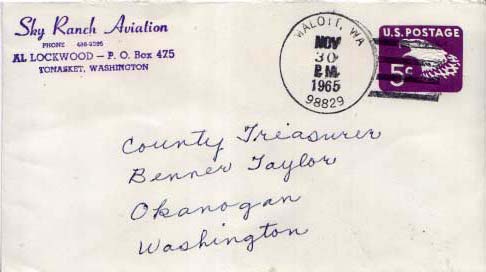 Sky Ranch Aviation
PHONE 486-2295
AL LOCKWOOD – P. O. Box 475
TONASKET, WASHINGTON
MALOTT, WA
NOV
30
P.M.
1965
98829
U.S. POSTAGE
5¢
County Treasurer
Benner Taylor
Okanogan
Washington